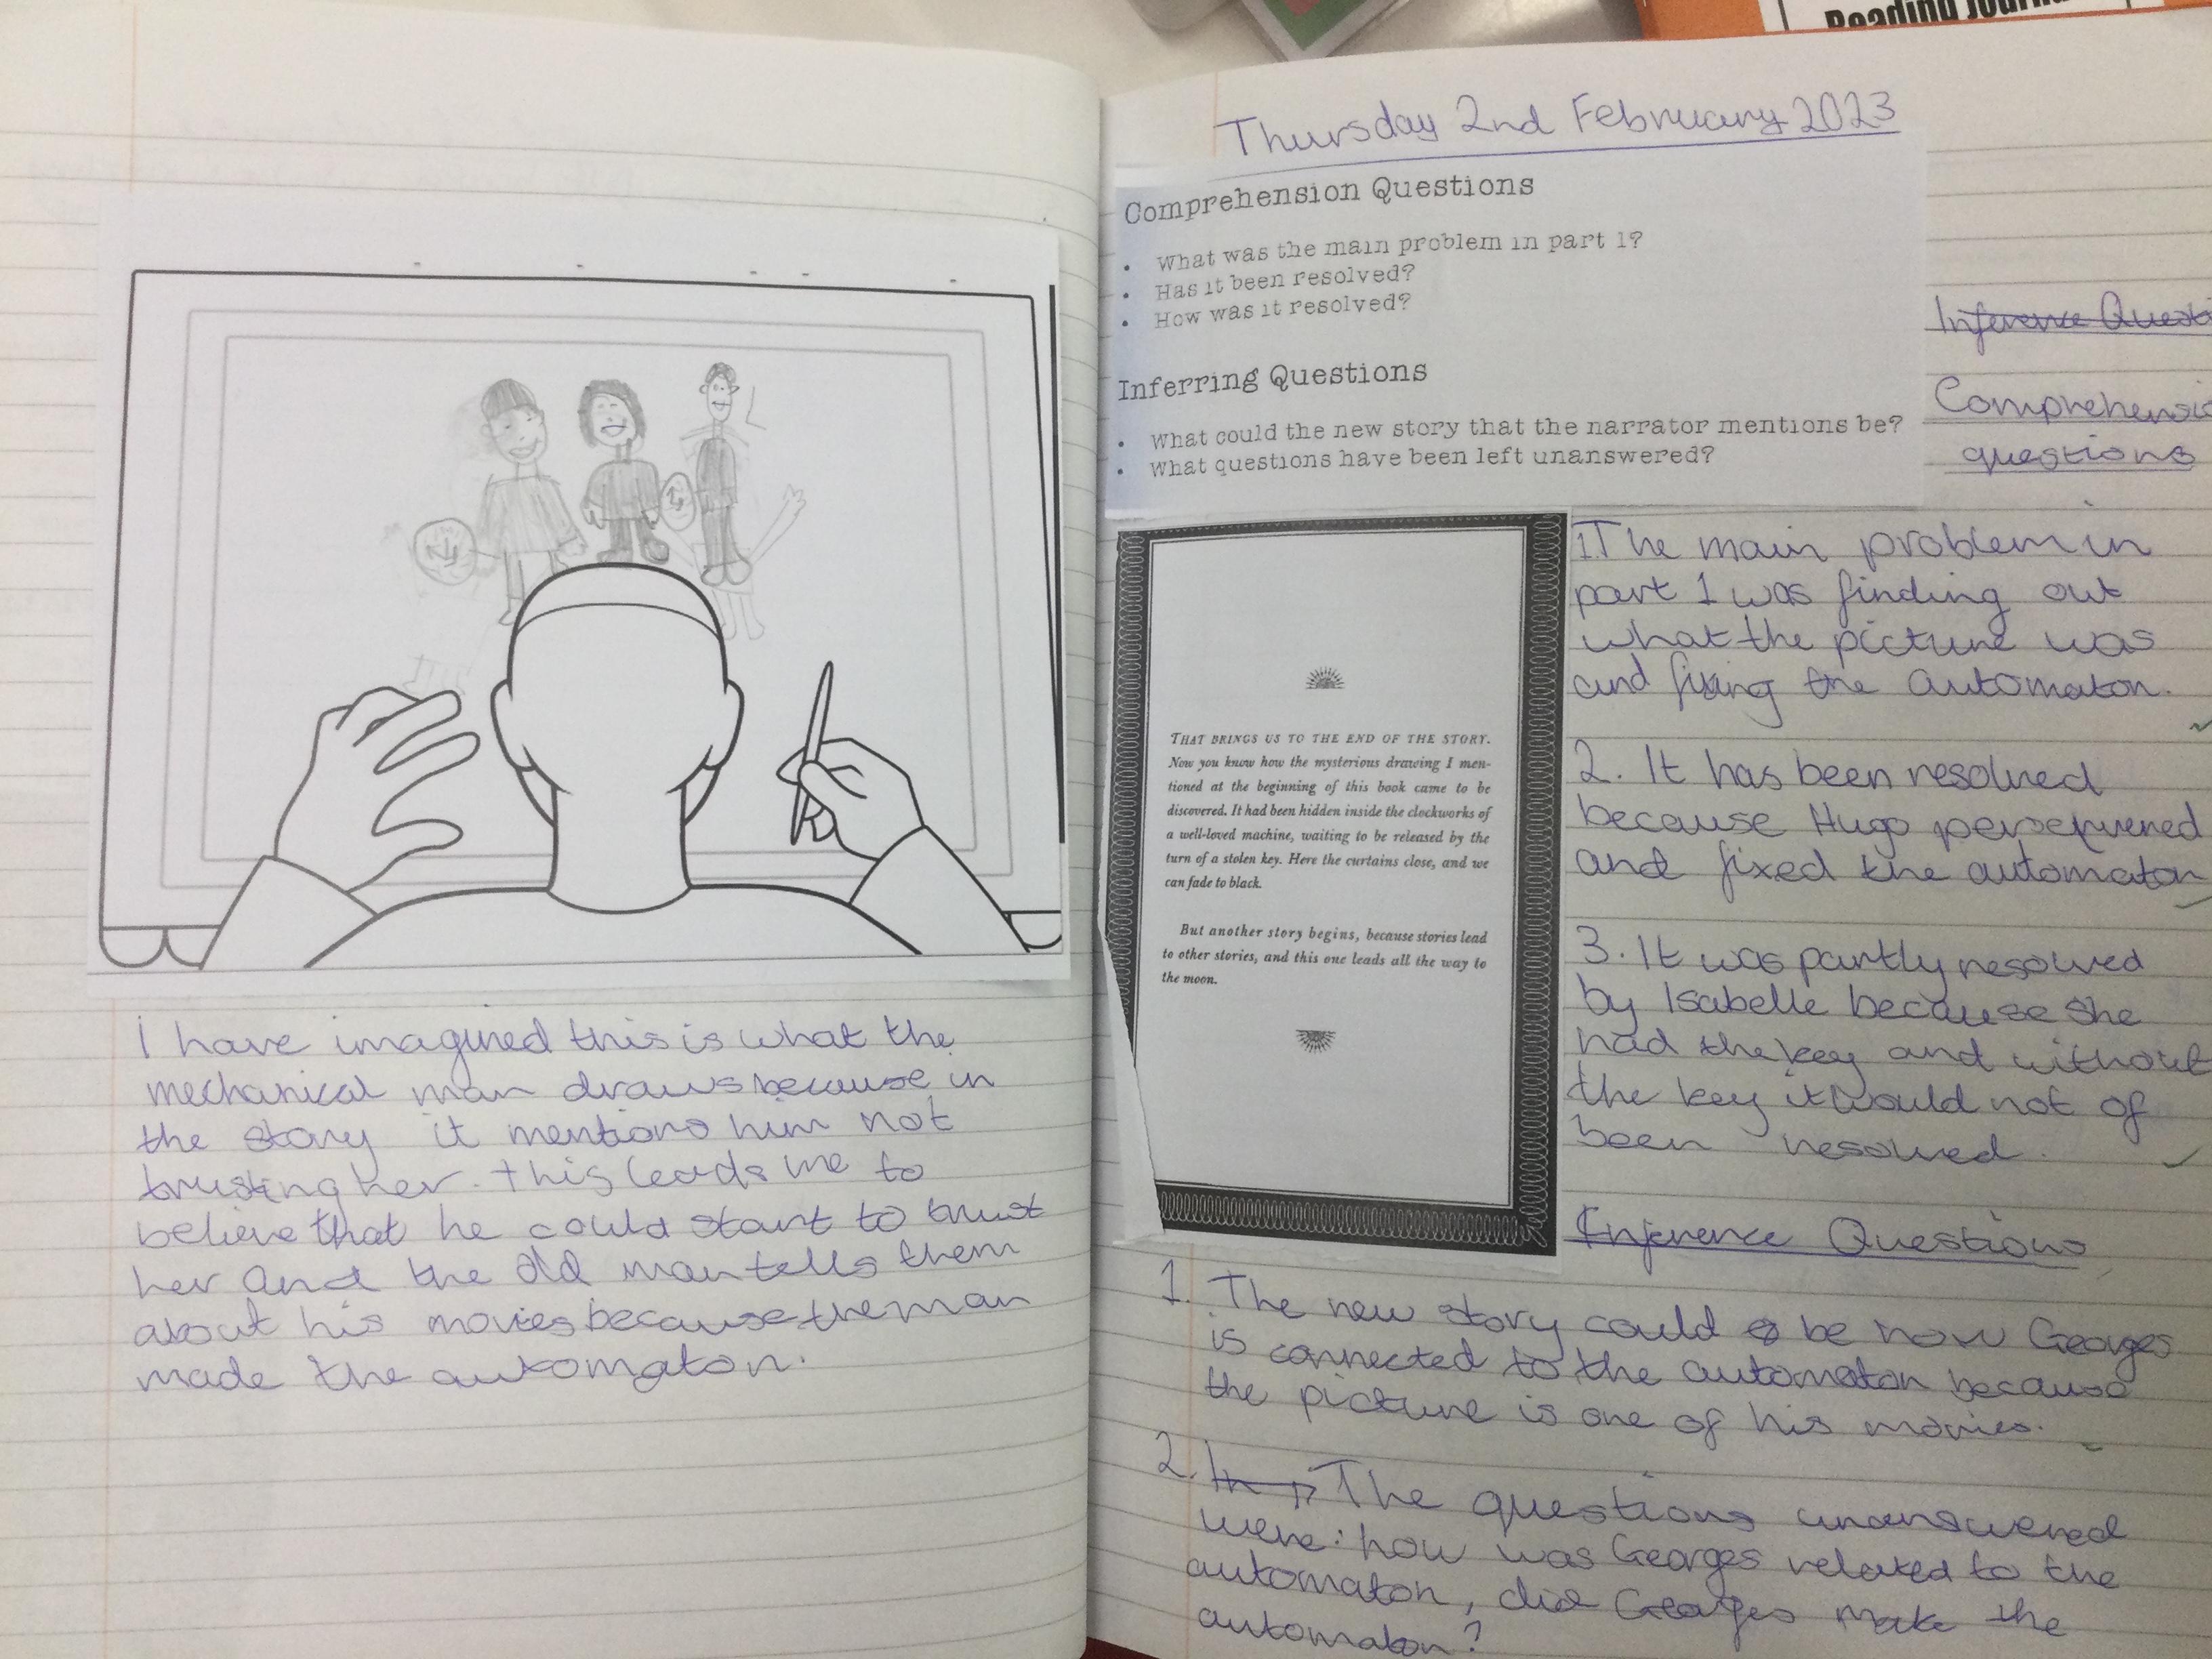 Reading Journ
I have imagined this is what the
mechanical man draws because in
the story it mentions him not
trusting her. this leads me to
believe that he could start to trust
her and the old man tells them
about his movies because the man
made the automaton.
Thursday 2nd February 2023
Comprehension Questions
• What was the main problem in part 1?
• Has it been resolved?
• How was it resolved?
Inferring Questions
• What could the new story that the narrator mentions be?
• What questions have been left unanswered?
Inference Quest
Comprehensio
questions
THAT BRINGS US TO THE END OF THE STORY.
Now you know how the mysterious drawing I men-
tioned at the beginning of this book came to be
discovered. It had been hidden inside the clockworks of
a well-loved machine, waiting to be released by the
turn of a stolen key. Here the curtains close, and we
can fade to black.
But another story begins, because stories lead
to other stories, and this one leads all the way to
the moon.
1. The main problem in
part 1 was finding out
what the picture was
and fixing the automaton.
2. It has been resolved
because Hugo perservered
and fixed the automaton
3. It was partly resolved
by Isabelle because she
had the key and without
the key it would not of
been resolved.
Inference Questions
1. The new story could be how Georges
is connected to the automaton because
the picture is one of his movies.
2. The questions unanswered
were: how was Georges related to the
automaton, did Georges make the
automaton?